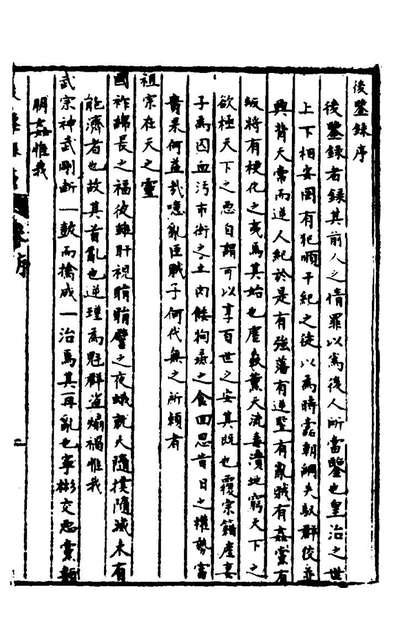 後鑒錄序
後鑒錄者錄其前人之情罪以為後人所當鑒也皇治之世
上下相安固有犯順干紀之徒以為時蠹朝綱失馭群佞並
興背天常而逆人紀於是有強藩有逆竪有亂戚有姦黨有
叛將有梗化之夷為其始也虐燄薰天流毒潰地窮天下之
欲極天下之惡自謂可以享百世之安其既也覆宗籍產妻
子為囚血污市街之土肉餧狗彘之食回思昔日之權勢富
貴果何益哉噫亂臣賊子何代無之所賴者
祖宗在天之靈
國祚綿長之福彼雖肝視睊睊譬之夜蛾就火隨撲隨滅未有
能濟者也故其首亂也逆瑾為魁群盜煽禍惟我
武宗神武剛斷一鼓而擒咸一治焉其再亂也寧彬交惡黨類
朋姦惟我
序